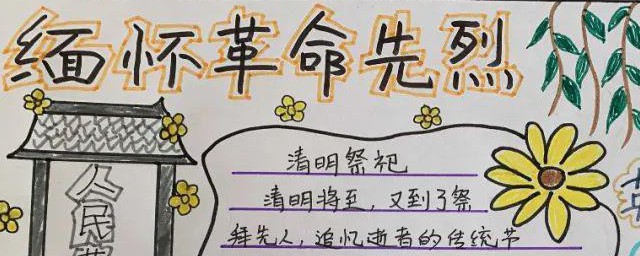 缅怀革命先烈
清明祭祀
清明将至，又到了祭
拜先人，追忆逝者的传统节
人民